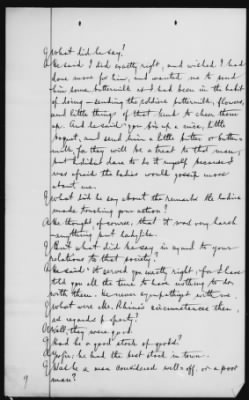 Q What did he say?
A He said I did exactly right, and wished I had
done more for him, and wanted me to send
him some buttermilk as I had been in the habit
of doing – sending the soldiers buttermilk, flowers,
and little things of that kind to cheer them
up. And he said you fix up a nice, little
bouquet, and send him a little butter or butter-
milk for they will be a treat to that man;
but I didn't dare to do it myself because I
was afraid the ladies would gossip more
about me.
Q What did he say about the remarks the ladies
made touching your action?
A He thought of course, that it was very harsh
– anything but ladylike.
Q But what did he say in regard to your
relations to that society?
A He said "It served you exactly right, for I have
told you all the time to have nothing to do
with them. He never sympathized with me.
Q What were Mr. Rhine's circumstances then,
as regards property?
A Well, they were good.
Q Had he a good stock of goods?
A Yes sir; he had the best stock in town.
Q Was he a man considered well-off, or a poor
man?
9